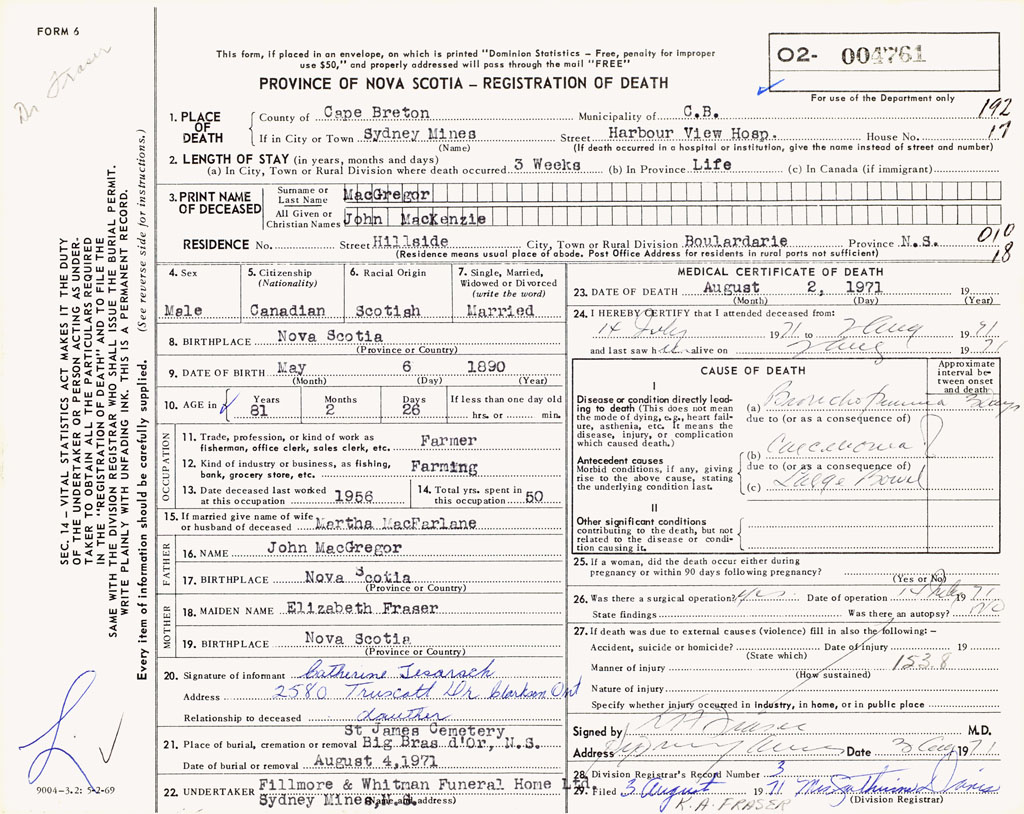 FORM 6
Dr Fraser
This form, if placed in an envelope, on which is printed "Dominion Statistics – Free, penalty for improper
use $50," and properly addressed will pass through the mail "FREE"
PROVINCE OF NOVA SCOTIA – REGISTRATION OF DEATH
02- 004761
For use of the Department only
192
17
1. PLACE OF DEATH County of Cape Breton Municipality of C.B.
If in City or Town Sydney Mines Street Harbour View Hosp. House No.
(Name) (If death occurred in a hospital or institution, give the name instead of street and number)
2. LENGTH OF STAY (in years, months and days)
(a) In City, Town or Rural Division where death occurred 3 Weeks (b) In Province Life (c) In Canada (if immigrant)
3. PRINT NAME OF DECEASED Surname or Last Name MacGregor
All Given or Christian Names John MacKenzie
RESIDENCE No. Street Hillside City, Town or Rural Division Boulardarie Province N.S.
(Residence means usual place of abode. Post Office Address for residents in rural parts not sufficient)
010
18
4. Sex Male
5. Citizenship (Nationality) Canadian
6. Racial Origin Scotish
7. Single, Married, Widowed or Divorced (write the word) Married
8. BIRTHPLACE Nova Scotia
(Province or Country)
9. DATE OF BIRTH May 6 1890
(Month) (Day) (Year)
10. AGE in Years 81 Months 2 Days 26 If less than one day old hrs. or min.
OCCUPATION
11. Trade, profession, or kind of work as fisherman, office clerk, sales clerk, etc. Farmer
12. Kind of industry or business, as fishing, bank, grocery store, etc. Farming
13. Date deceased last worked at this occupation 1956
14. Total yrs. spent in this occupation 50
15. If married give name of wife or husband of deceased Martha MacFarlane
FATHER
16. NAME John MacGregor
17. BIRTHPLACE Nova Scotia
(Province or Country)
MOTHER
18. MAIDEN NAME Elizabeth Fraser
19. BIRTHPLACE Nova Scotia
(Province or Country)
20. Signature of informant Catherine
Address 2580 Truscott Dr Clarkson Ont
Relationship to deceased dauther
St James Cemetery
21. Place of burial, cremation or removal Big Bras d'Or, N.S.
Date of burial or removal August 4, 1971
22. UNDERTAKER Fillmore & Whitman Funeral Home Ltd.
Sydney Mines, N.S.
(Name and address)
MEDICAL CERTIFICATE OF DEATH
23. DATE OF DEATH August 2, 1971 19
(Month) (Day) (Year)
24. I HEREBY CERTIFY that I attended deceased from:
14 July 1971 to 2 Aug 1971
and last saw h alive on 2 Aug 1971
CAUSE OF DEATH
Approximate interval between onset and death
I
Disease or condition directly leading to death (This does not mean the mode of dying, e.g., heart failure, asthenia, etc. It means the disease, injury, or complication which caused death.)
(a) Bronchopneumonia 3 days
due to (or as a consequence of)
Antecedent causes
Morbid conditions, if any, giving rise to the above cause, stating the underlying condition last.
(b) Carcinoma
due to (or as a consequence of)
(c) Large Bowel
II
Other significant conditions
contributing to the death, but not related to the disease or condition causing it.
25. If a woman, did the death occur either during pregnancy or within 90 days following pregnancy?
(Yes or No)
26. Was there a surgical operation? yes Date of operation 14 July 1971
State findings Was there an autopsy? NO
27. If death was due to external causes (violence) fill in also the following: –
Accident, suicide or homicide? Date of injury 19
(State which)
Manner of injury 153.8
(How sustained)
Nature of injury
Specify whether injury occurred in industry, in home, or in public place
Signed by K A Fraser M.D.
Address Sydney Mines Date 3 Aug 1971
28. Division Registrar's Record Number 3
29. Filed 3 August 1971 Mrs Davis
K. A. FRASER (Division Registrar)
SEC. 14 – VITAL STATISTICS ACT MAKES IT THE DUTY
OF THE UNDERTAKER OR PERSON ACTING AS UNDER-
TAKER TO OBTAIN ALL THE PARTICULARS REQUIRED
IN THE "REGISTRATION OF DEATH" AND TO FILE THE
SAME WITH THE DIVISION REGISTRAR WHO SHALL ISSUE THE BURIAL PERMIT.
WRITE PLAINLY WITH UNFADING INK. THIS IS A PERMANENT RECORD.
Every item of information should be carefully supplied. (See reverse side for instructions.)
9004-3.2: 5-2-69